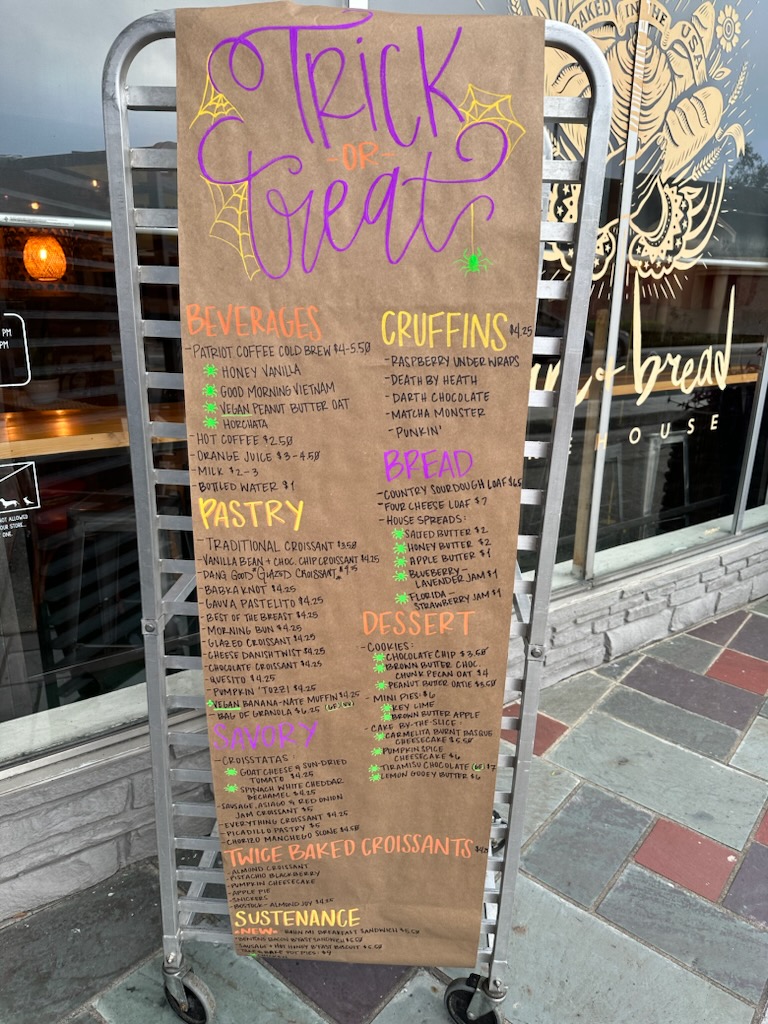 TRICK
-OR-
Treat
BEVERAGES
-PATRIOT COFFEE COLD BREW $4-5.50
HONEY VANILLA
GOOD MORNING VIETNAM
VEGAN PEANUT BUTTER OAT
HORCHATA
-HOT COFFEE $2.50
-ORANGE JUICE $3-4.50
-MILK $2-3
-BOTTLED WATER $1
PASTRY
-TRADITIONAL CROISSANT $3.50
-VANILLA BEAN + CHOC. CHIP CROISSANT $4.25
-DANG GOOD "GLAZED CROISSANT"
-BABKA KNOT $4.25
-GAUVA PASTELITO $4.25
-BEST OF THE BREAST $4.25
-MORNING BUN $4.25
-GLAZED CROISSANT $4.25
-CHEESE DANISH TWIST $4.25
-CHOCOLATE CROISSANT $4.25
-QUESITO $4.25
-PUMPKIN 'TOZZI $4.25
VEGAN BANANA-NATE MUFFIN $4.25
-BAG OF GRANOLA $6.25
SAVORY
-CROISSTATAS:
GOAT CHEESE & SUN-DRIED
TOMATO $4.25
SPINACH WHITE CHEDDAR
BECHAMEL $4.25
-SAUSAGE, ASIAGO & RED ONION
JAM CROISSANT $5
-EVERYTHING CROISSANT $4.25
-PICADILLO PASTRY $5
-CHORIZO MANCHEGO SCONE $4.50
CRUFFINS $4.25
-RASPBERRY UNDER WRAPS
-DEATH BY HEATH
-DARTH CHOCOLATE
-MATCHA MONSTER
-PUNKIN'
BREAD
-COUNTRY SOURDOUGH LOAF
-FOUR CHEESE LOAF $7
-HOUSE SPREADS:
SALTED BUTTER $2
HONEY BUTTER $2
APPLE BUTTER $1
BLUEBERRY-
LAVENDER JAM $1
FLORIDA-
STRAWBERRY JAM $1
DESSERT
-COOKIES:
CHOCOLATE CHIP $3.50
BROWN BUTTER CHOC.
CHUNK PECAN OAT $4
PEANUT BUTTER OATIE $3.50
-MINI PIES: $6
KEY LIME
BROWN BUTTER APPLE
-CAKE BY-THE-SLICE:
CARMELITA BURNT BASQUE
CHEESECAKE $5.50
PUMPKIN SPICE
CHEESECAKE $6
TIRAMISU CHOCOLATE (GF) $7
LEMON GOOEY BUTTER $6
TWICE BAKED CROISSANTS
-ALMOND CROISSANT
-PISTACHIO BLACKBERRY
-PUMPKIN CHEESECAKE
-APPLE PIE
-SNICKERS
-BOSTOCK - ALMOND JOY $4.25
SUSTENANCE
-NEW- BAHN MI BREAKFAST SANDWICH
BACON B'FAST SANDWICH
-SAUSAGE + HOT HONEY B'FAST BISCUIT
POT PIES: $9
BAKED IN THE USA
+ bread
HOUSE
PM
PM
NOT ALLOWED
YOUR STORE...
ONE.